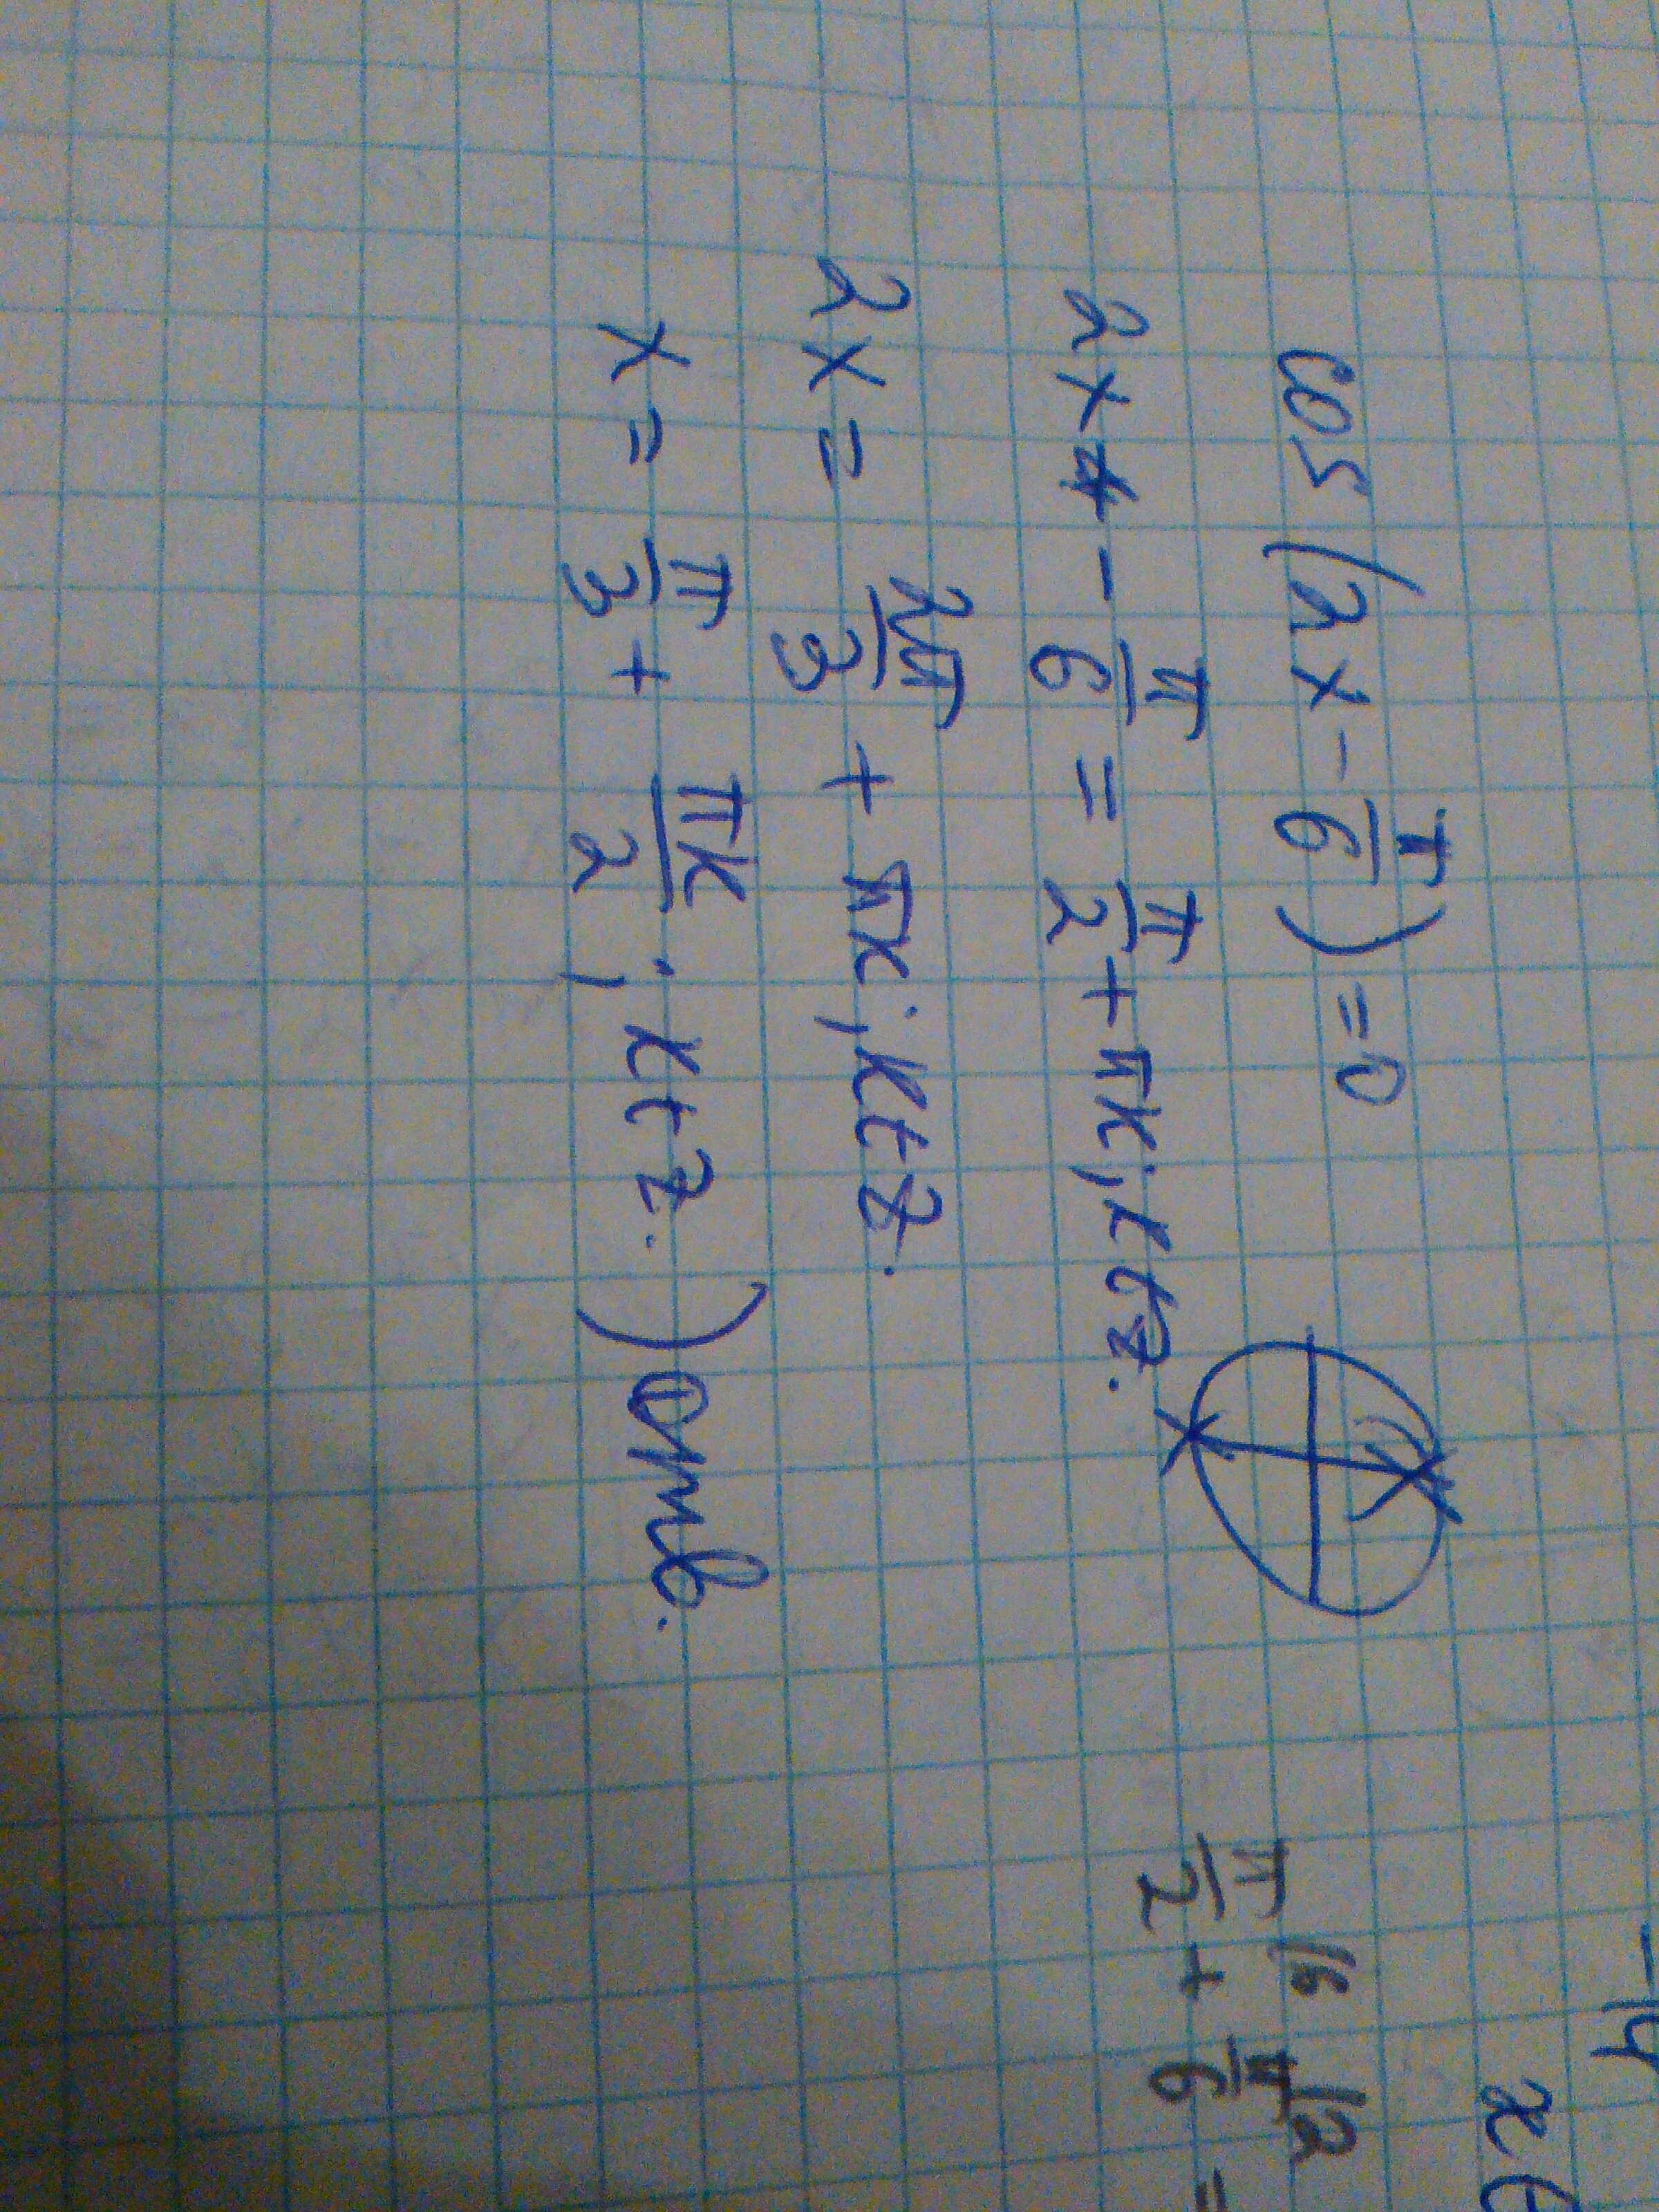 cos(2x - π/6) = 0
2x - π/6 = π/2 + πk; k∈z.
2x = 2π/3 + πк; k∈z.
x = π/3 + πk/2; k∈z. ) отв.
π/2 + π/6 =